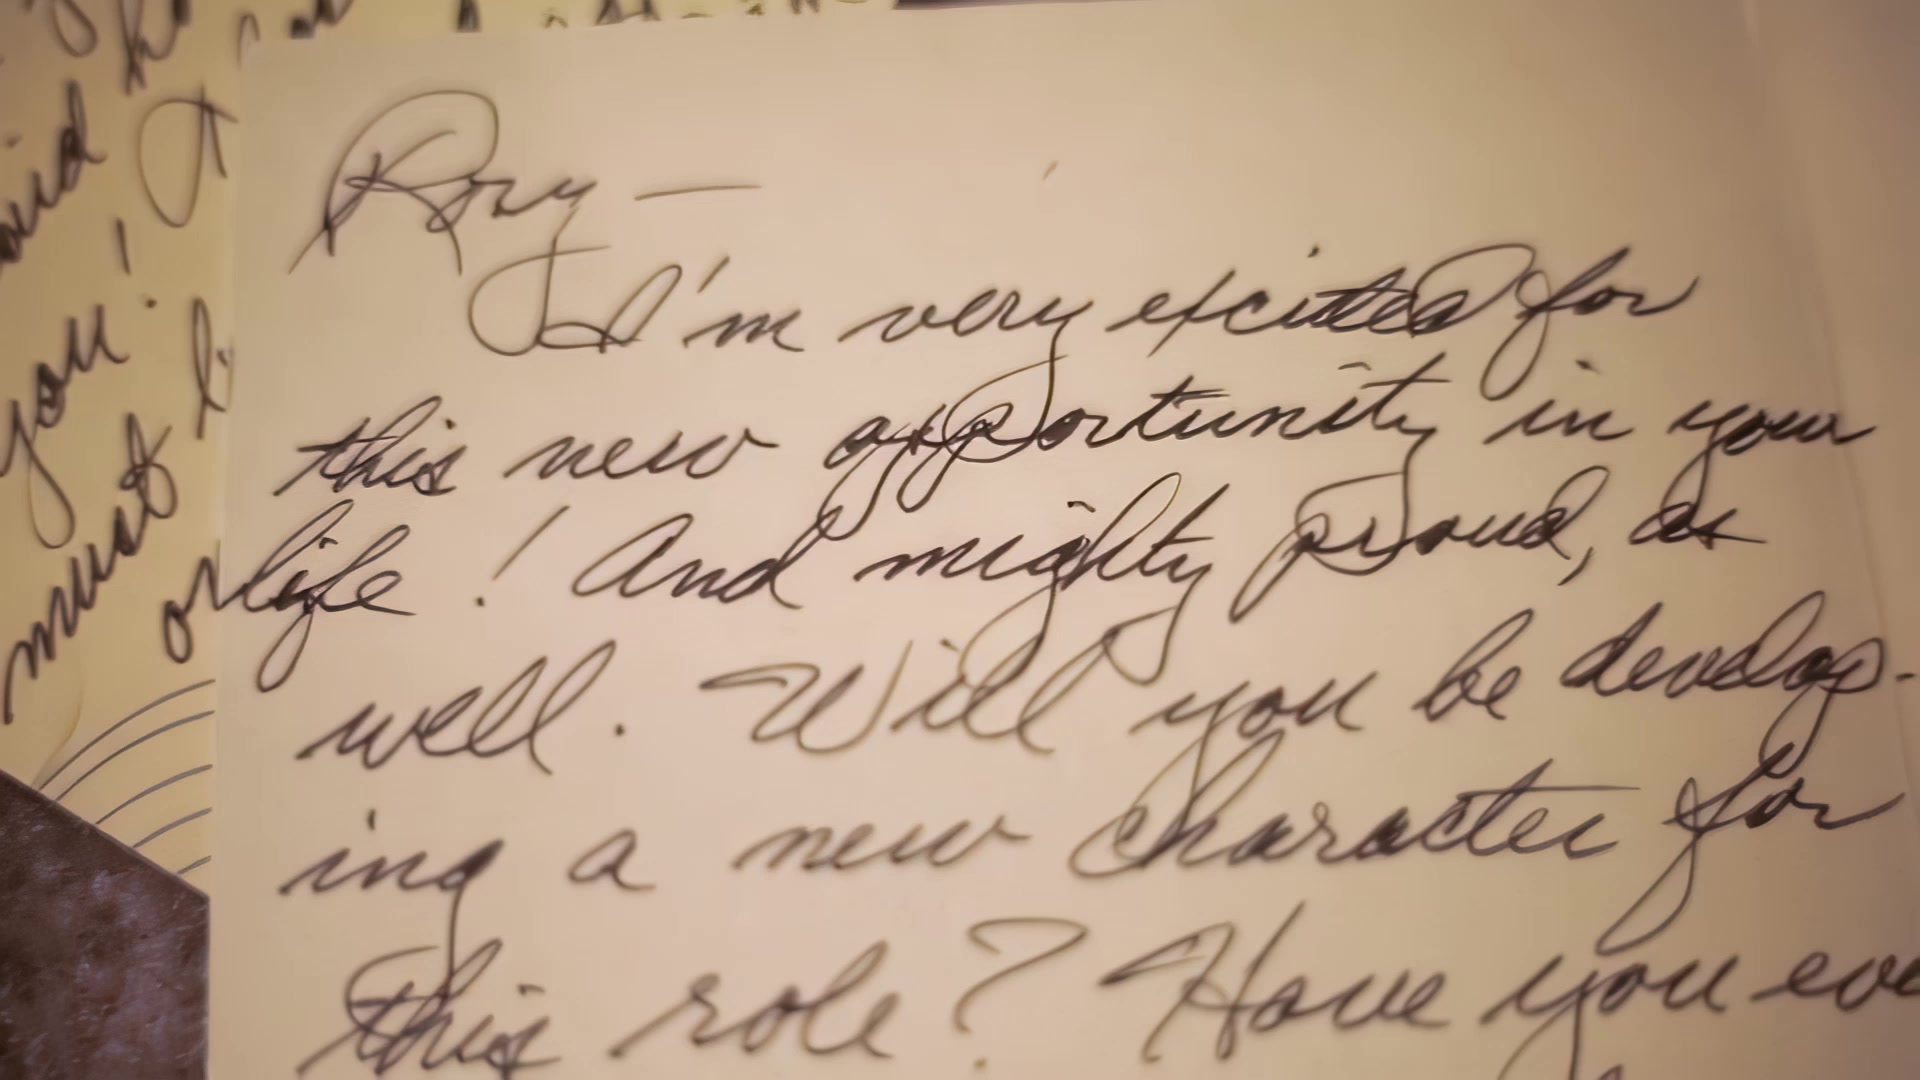 Rory —
I'm very excited for
this new opportunity in your
life! And mighty proud, as
well. Will you be develop-
ing a new character for
this role? Have you
you!
must
or